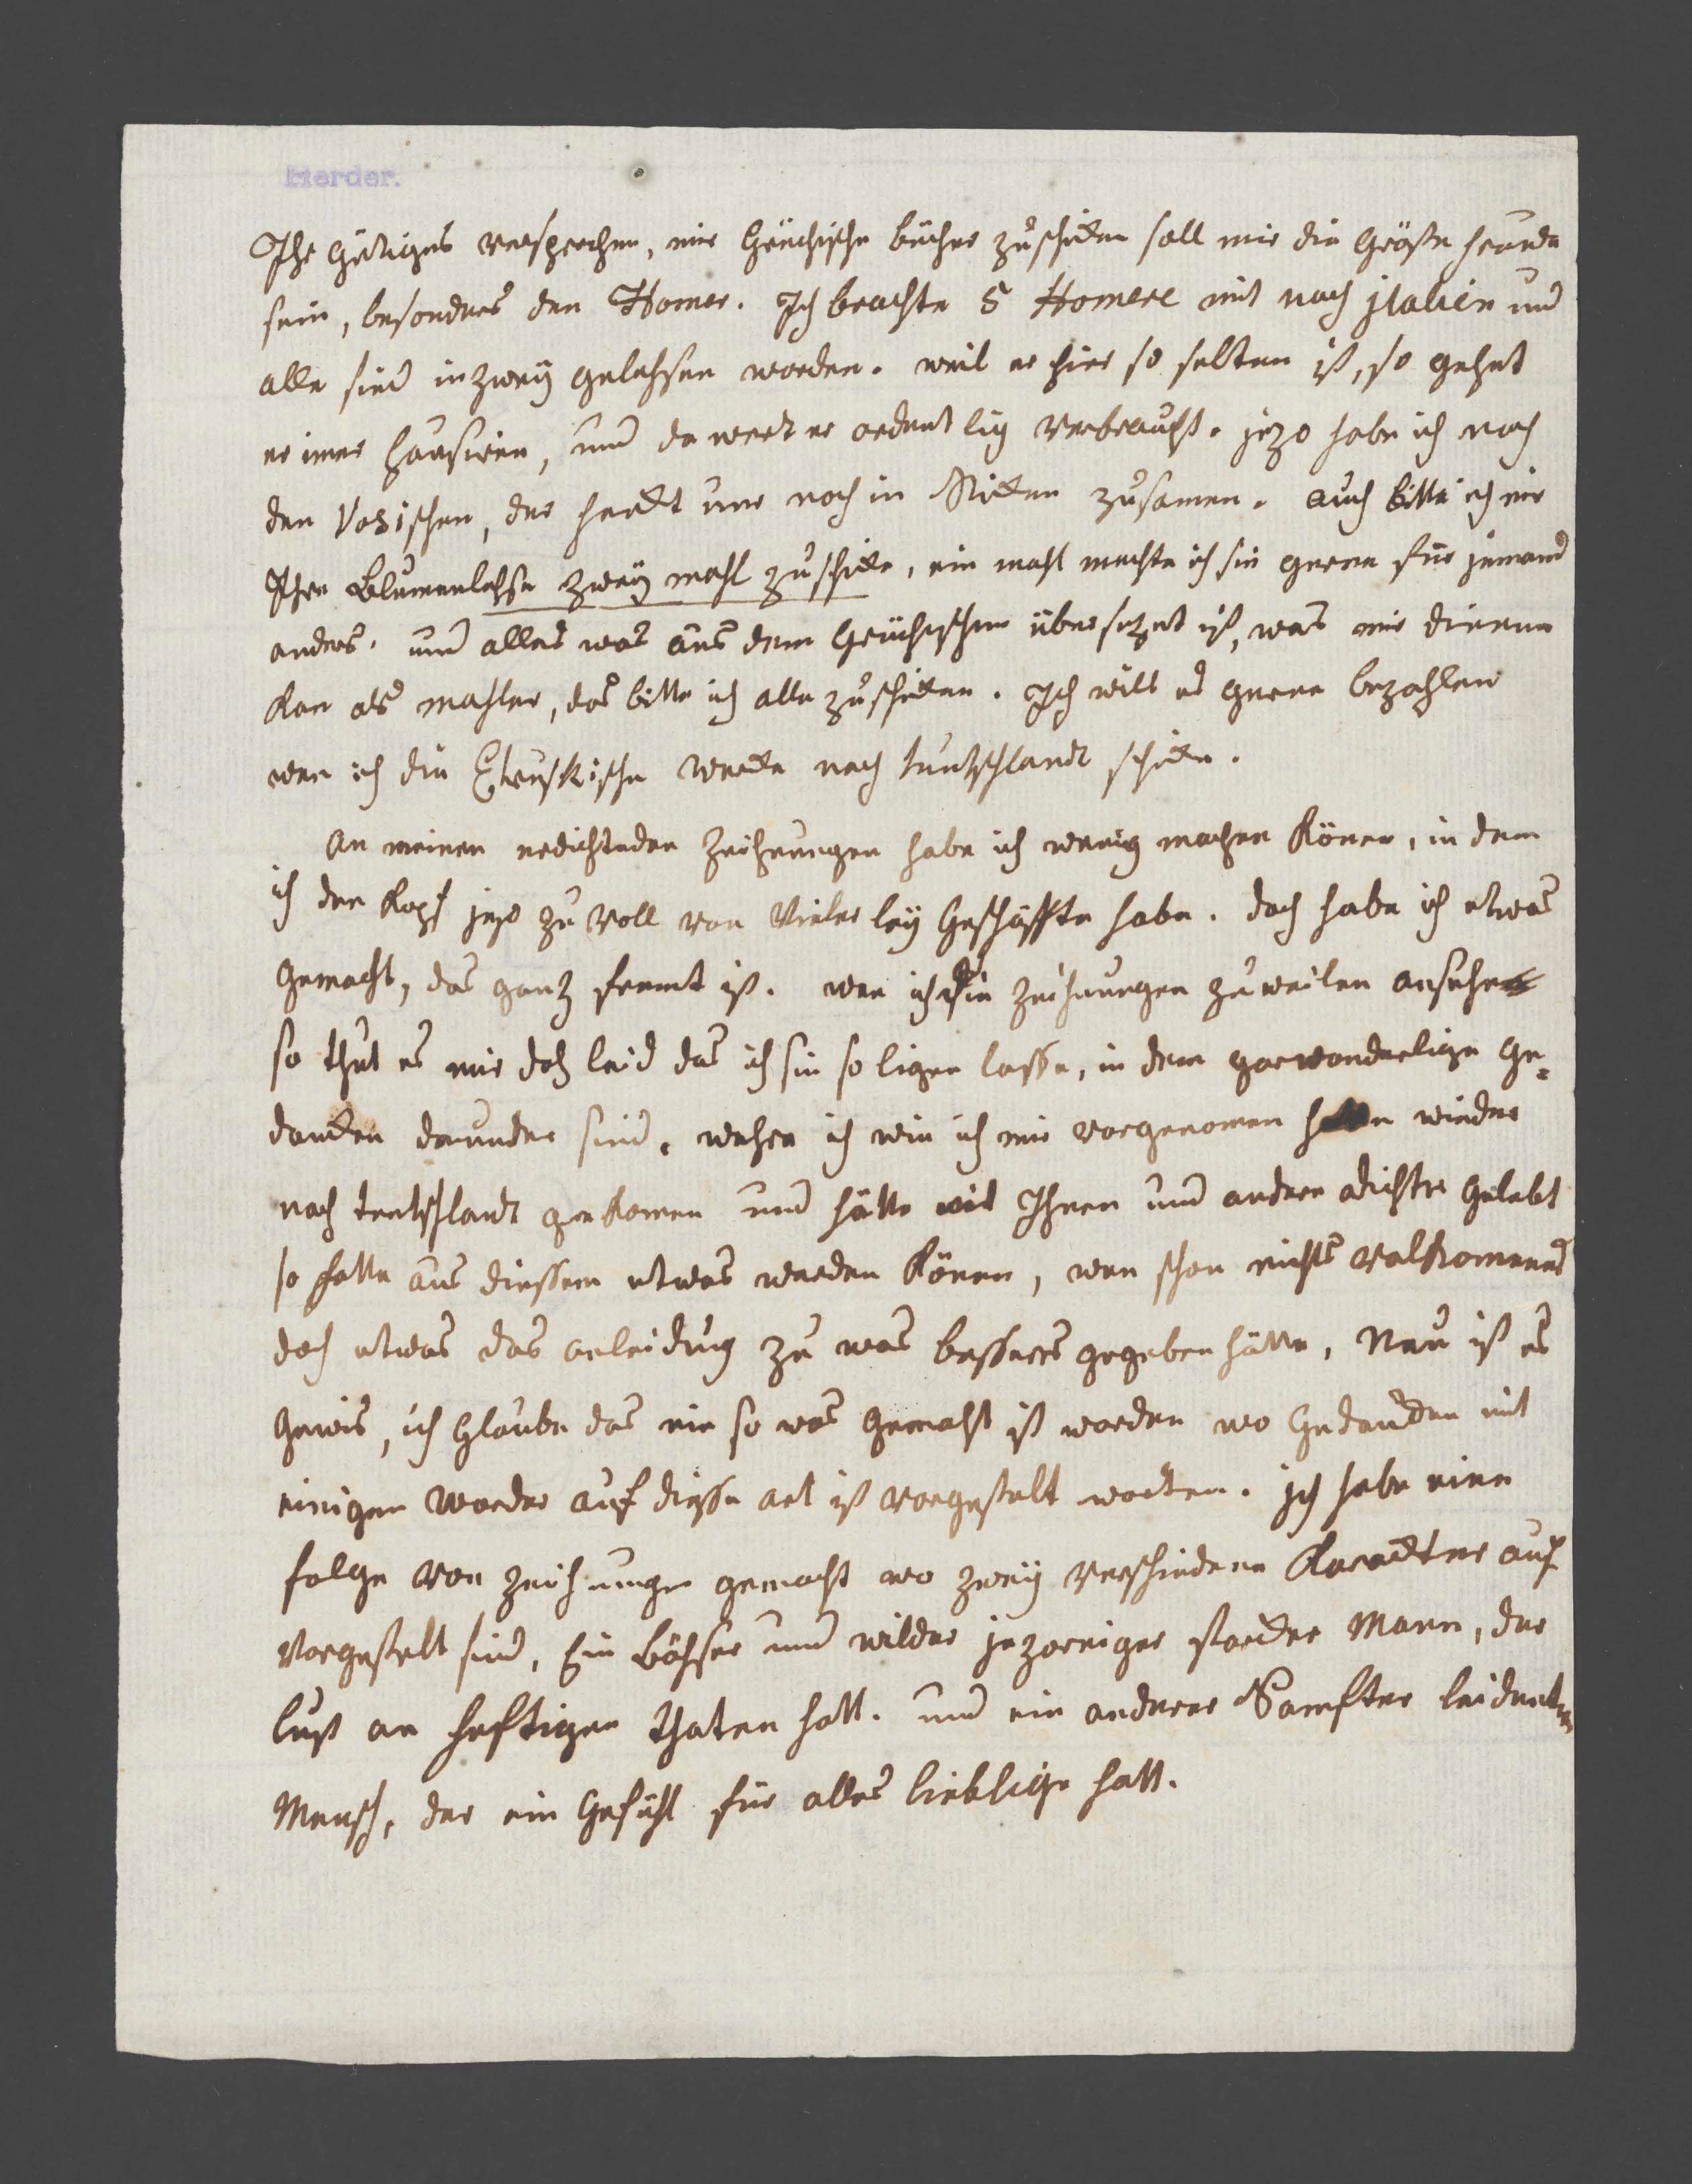 Herder.
Ihr gütiges versprechen, mir Grichische bücher zuschiken soll mir die Gröste freude
sein, besonders den Homer. Ich brachte 5 Homere mit nach jtalien und
alle sind inzweÿ gelehsen worden. weil er hier so selten ist, so gehet
er imer hausiren, und da wert er ordentlig verbraucht. jezo habe ich noch
den Vosischen, der henckt nur noch in Stücken zusamen. auch bitte ich mir
Ihre Blumenlehse zweÿ mahl zuschike, ein mahl mechte ich sie gerne für jemand
anders. und alles was aus dem Grichischen übersezet ist, was mir dienen
kan als mahler, das bitte ich alle zuschicken. Ich will es gerne bezahlen
wen ich die Etruskische wercke nach teutschlandt schicke.
An meinen redichteden Zeichnungen habe ich wenig machen könen, in dem
ich den Kopf jezo zu voll von vielerleÿ Geschäffte habe. doch habe ich etwas
gemacht, das ganz fremt ist. wen ich die Zeichnungen zuweilen ansehe
so thut es mir doch leid das ich sie so ligen lasse, in dem gar wonderlige Ge¬
dancken darunder sind. wehre ich wie ich mir vorgenomen hatte wieder
nach teutschlandt gekomen und hätte mit Ihnen und andern dichter gelebt
so hette aus diessem etwas werden könen, wen schon nichts volkomenes
doch etwas das anleidung zu was bessers gegeben hätte, Neu ist es
gewis, ich glaube das nie so was gemacht ist worden wo Gedancken mit
einigen worder auf diesse art ist vorgestelt worden. jch habe eine
folge von Zeichnungen gemacht wo zweÿ verschiedene Karackter auf
vorgestelt sind, Ein böhser und wilder jezorniger starcker Mann, der
lust an heftigen thaten hatt. und ein anderer Sanfter leident
Mensch, der ein Gefühl für alles lieblige hatt.